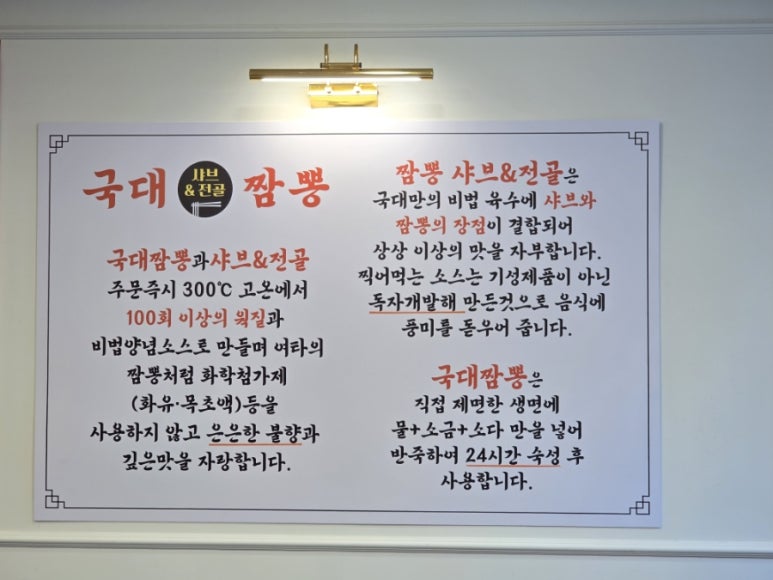 국대 샤브&전골 짬뽕
국대짬뽕과샤브&전골
주문즉시 300℃ 고온에서
100회 이상의 웍질과
비법양념소스로 만들며 여타의
짬뽕처럼 화학첨가제
(화유·목초액)등을
사용하지 않고 은은한 불향과
깊은맛을 자랑합니다.
짬뽕 샤브&전골은
국대만의 비법 육수에 샤브와
짬뽕의 장점이 결합되어
상상 이상의 맛을 자부합니다.
찍어먹는 소스는 기성제품이 아닌
독자개발해 만든것으로 음식에
풍미를 돋우어 줍니다.
국대짬뽕은
직접 제면한 생면에
물+소금+소다 만을 넣어
반죽하여 24시간 숙성 후
사용합니다.